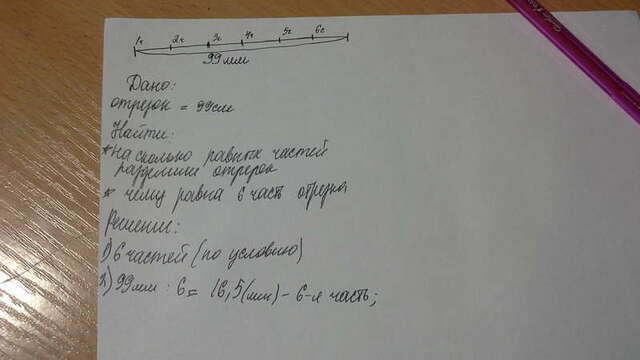 1ч 2ч 3ч 4ч 5ч 6ч
99 мм
Дано:
отрезок = 99см
Найти:
* На сколько равных частей
разделили отрезок
* чему равна 6 часть отрезка
Решение:
1) 6 частей (по условию)
2) 99мм : 6 = 16,5(мм) - 6-я часть;